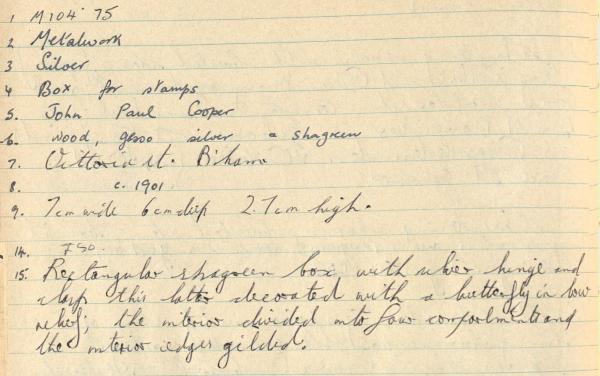 1 M104 '75
2 Metalwork
3 Silver
4 Box for stamps
5. John Paul Cooper
6. wood, gesso silver & shagreen
7. Victoria St. B'ham
8. c. 1901
9. 7cm wide 6cm deep 2.7cm high.
14. £50.
15. Rectangular shagreen box with silver hinge and
clasp this latter decorated with a butterfly in low
relief; the interior divided into four compartments and
the interior edges gilded.